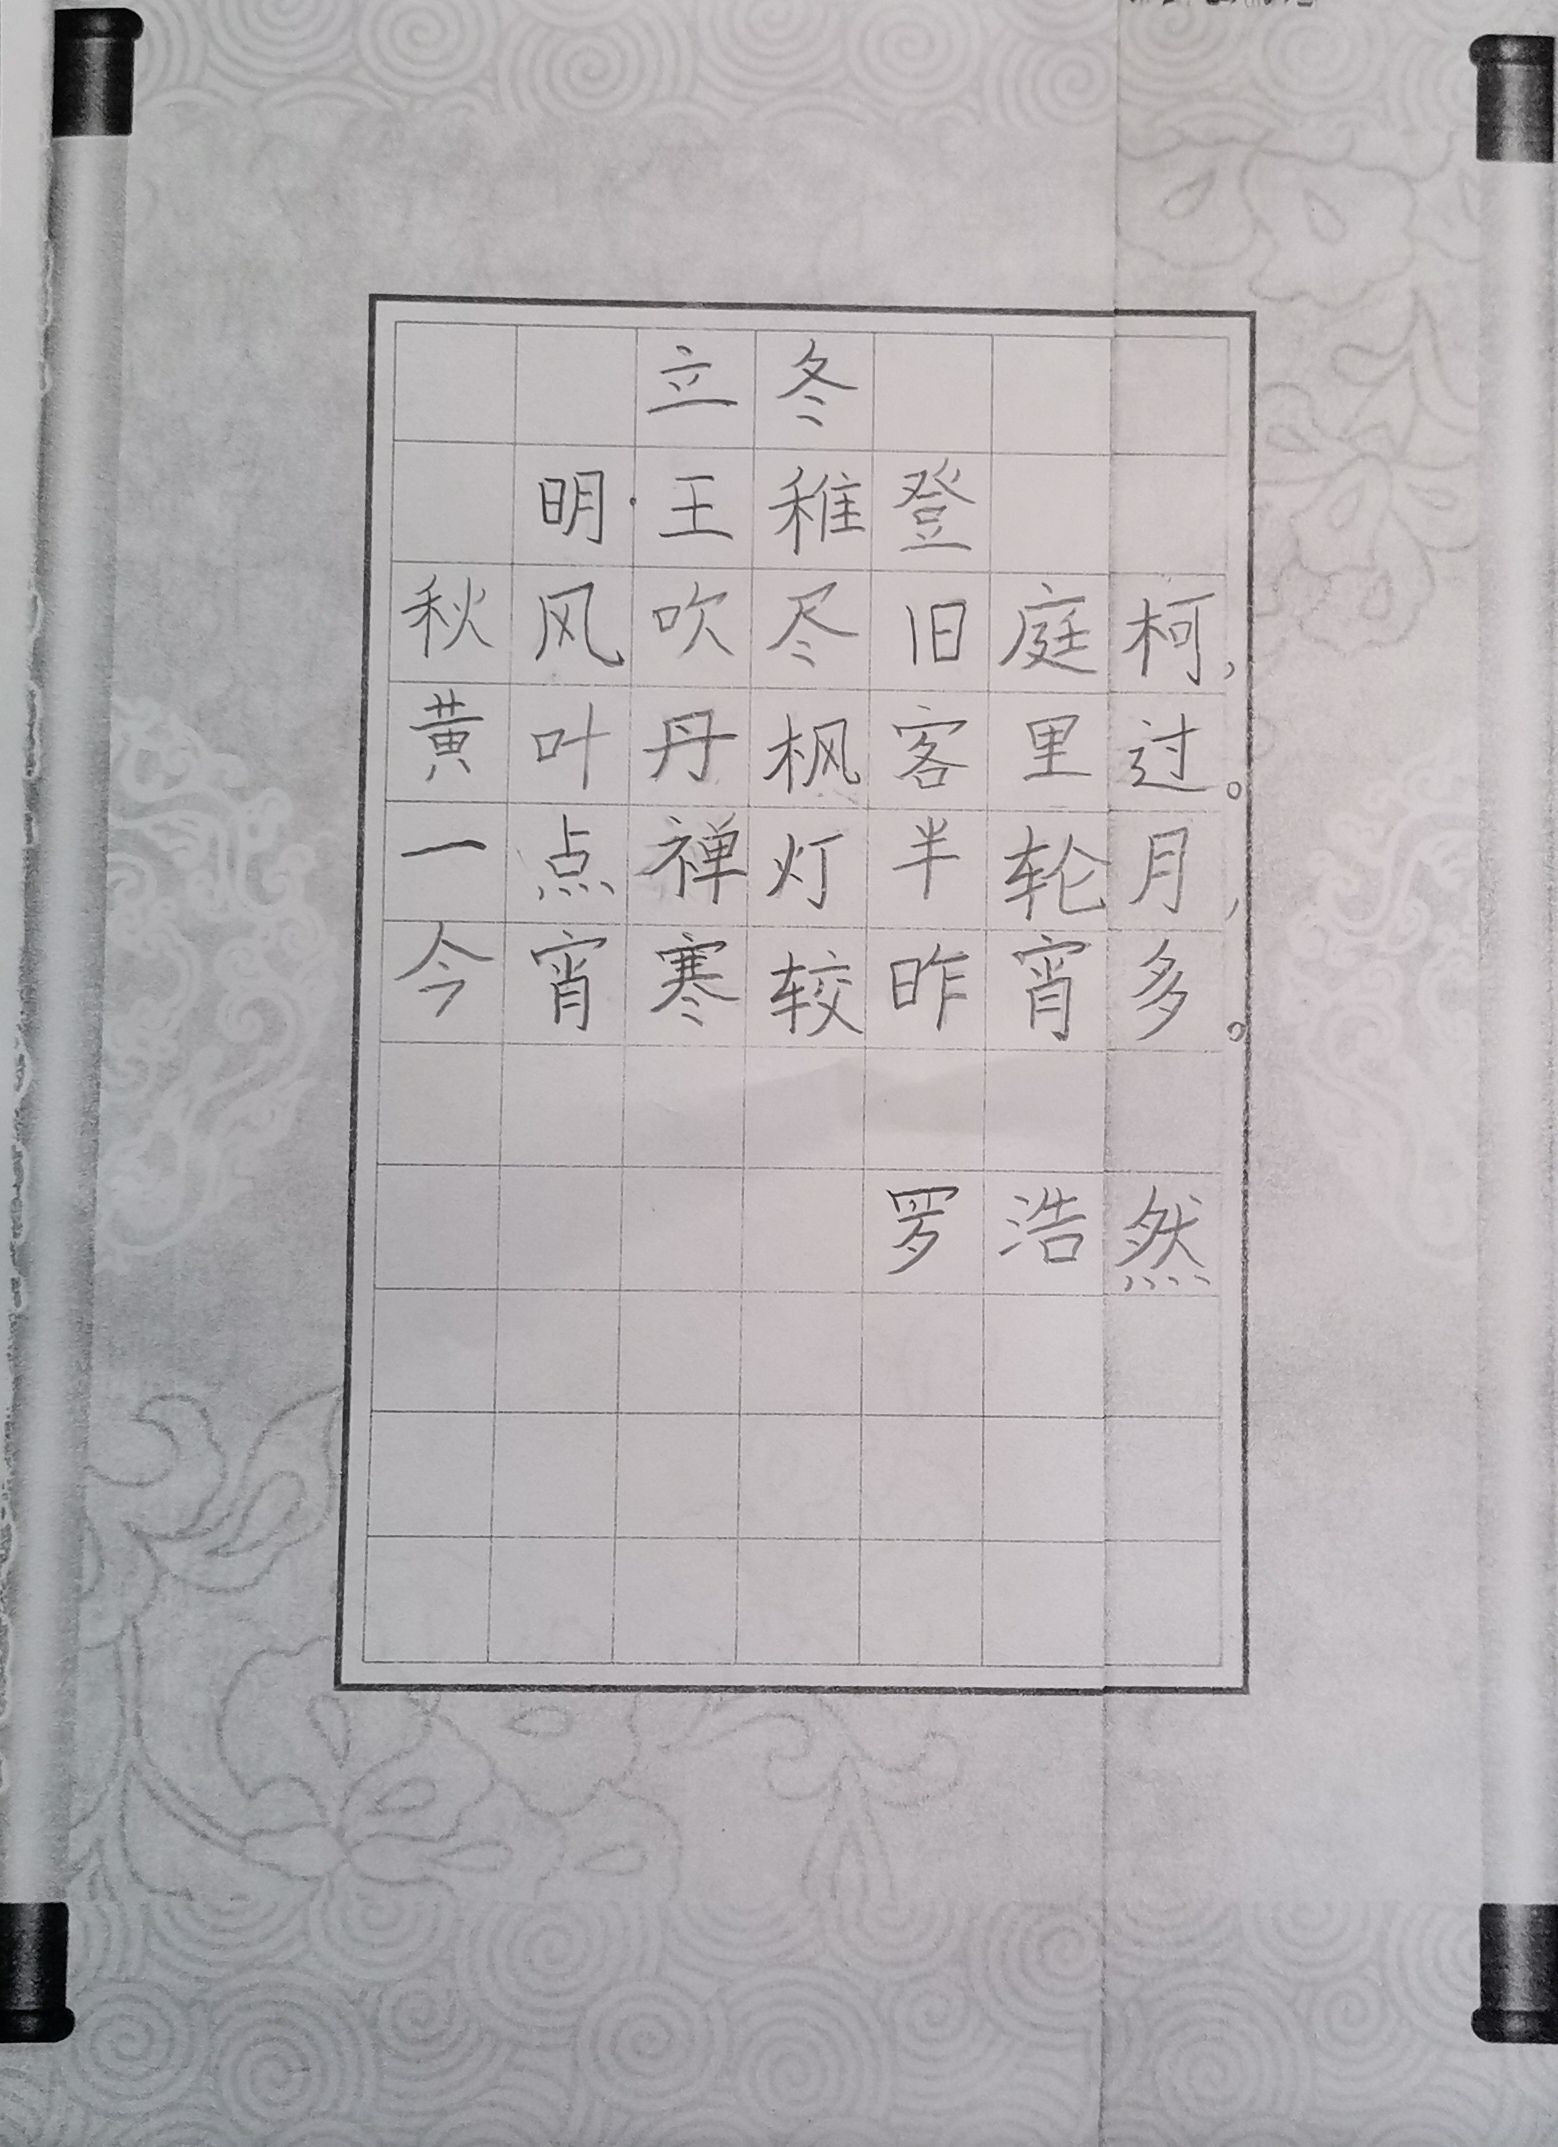 立冬
明·王稚登
秋风吹尽旧庭柯，
黄叶丹枫客里过。
一点禅灯半轮月，
今宵寒较昨宵多。
罗浩然